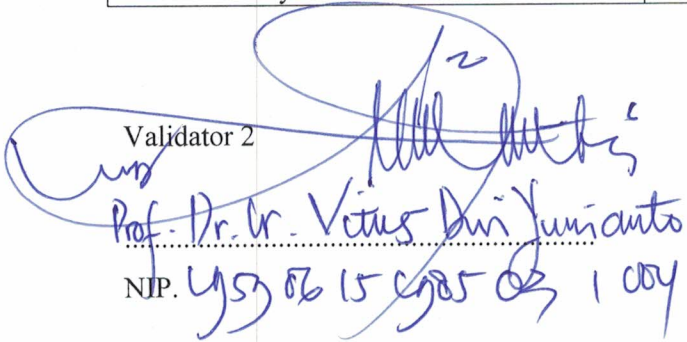 Validator 2
Prof. Dr. Ir. Vitus Dwi Yunianto
NIP. 1959 06 15 1985 03 1 004